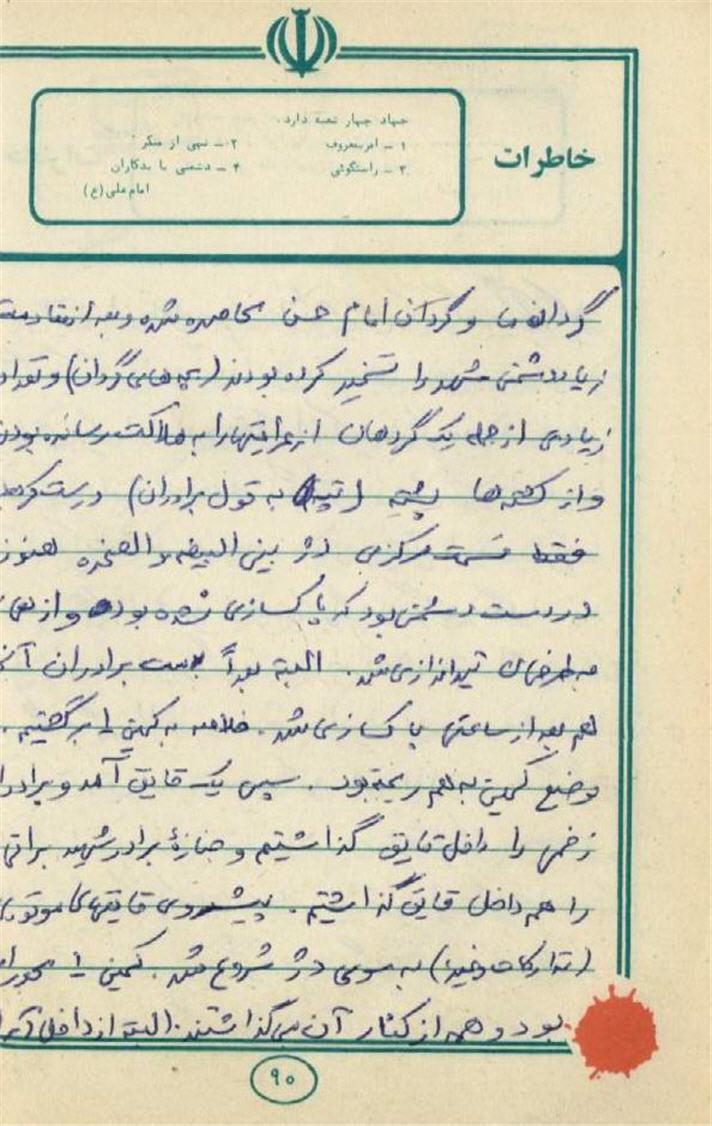 خاطرات
جهاد چهار شعبه دارد.
۱ ـ امر بمعروف ۲ ـ نهی از منکر
۳ ـ راستگوئی ۴ ـ دشمنی با بدکاران
امام علی (ع)
گردان ما و گردان امام حسن محاصره شده و بعد از مقاومت
زیاد دشمن شهر را تسخیر کرده بودند (بچه‌های گردان) و تعداد
زیادی از جمله یک گردهان از عراقیها را به هلاکت رسانده بودن
و از کشته‌ها پشته (تپه به قول برادران) درست کرده
فقط قسمت مرکزی دژ بین البیضه و الصخره هنوز
در دست دشمن بود که پاکسازی نشده بود و از
به طرفمان تیراندازی می‌شد. البته بعداً بدست برادران آنج
هم بعد از ساعتی پاکسازی شد. خلاصه به کمین ۱ برگشتیم.
وضع کمین به هم ریخته بود. سپس یک قایق آمد و برادرا
زخمی را داخل قایق گذاشتیم و جنازهٔ برادر شهید براتی
را هم داخل قایق گذاشتیم. پیشروی قایقهای موتوری
(تدارکات وغیره) به سوی دژ شروع شد. کمین ۱ محور
بود و همه از کنار آن می‌گذاشتند. البته از داخل آبرا
۹۰